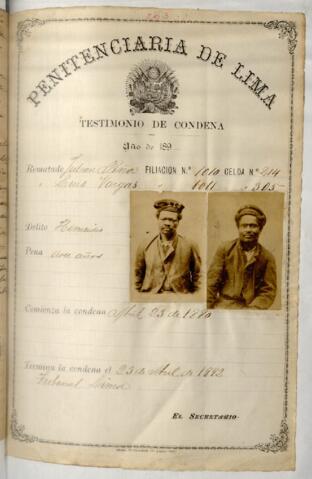 PENITENCIARIA DE LIMA
TESTIMONIO DE CONDENA
Año de 189
Rematado Julian FILIACION N.º 1010 CELDA N.º 214
" Vargas " 1011 " 305
Delito Homicidio
Pena años
Comienza la condena Abril 23 de 1880
Termina la condena el 23 de Abril de 1892
Tribunal Lima
EL SECRETARIO